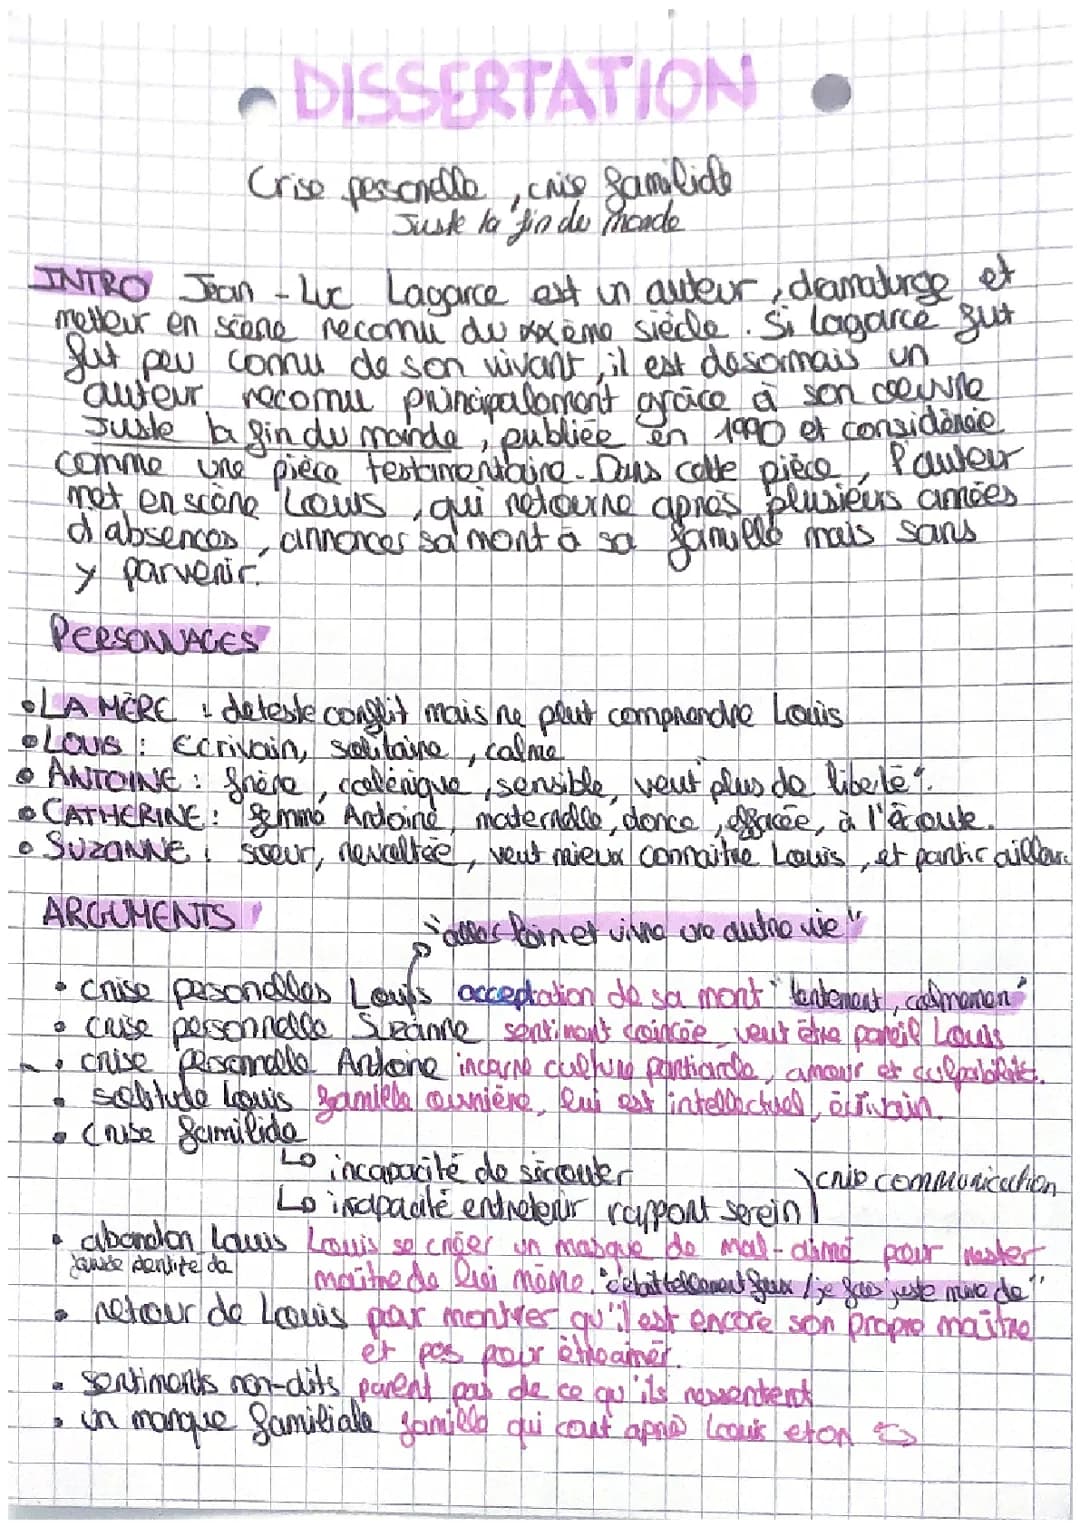 DISSERTATION
Crise personelle, crise familiale
Juste la fin du monde
INTRO Jean-Luc Lagarce est un auteur, dramaturge et
metteur en scène reconnu du xxème siècle. Si Lagarce fut
fut peu connu de son vivant, il est désormais un
auteur reconnu principalement grâce à son oeuvre
Juste la fin du monde, publiée en 1990 et considérée
comme une pièce testamentaire. Dans cette pièce, l'auteur
met en scène Louis, qui retourne après plusieurs années
d'absences, annoncer sa mort à sa famille mais sans
y parvenir.
PERSONNAGES
• LA MÈRE : deteste conflit mais ne peut comprendre Louis
• LOUIS : Ecrivain, solitaire, calme
• ANTOINE : frère, colérique, sensible, veut "plus de liberté".
• CATHERINE : femme Antoine, maternelle, douce, effacée, à l'écoute.
• SUZANNE : soeur, revoltée, veut mieux connaitre Louis, et partir ailleurs
ARGUMENTS
"aller loin et vivre une autre vie"
• crise personelles Louis acceptation de sa mort "lentement, calmement"
• crise personnelle Suzanne sentiment coincée, veut être pareil Louis
• crise personnelle Antoine incarne culture patriarcale, amour et culpabilité.
• solitude Louis famille ouvrière, lui est intellectuel, écrivain.
• Crise familiale
↳ incapacité de s'écouter
↳ incapacité entretenir rapport serein
crise communication
• abandon Louis Louis se créer un masque de mal-aimé pour rester
fausse identité de maître de lui même. "c'était tellement faux / je fais juste mine de"
• retour de Louis par montrer qu'il est encore son propre maître
et pas pour être aimer.
• sentiments non-dits parlent pas de ce qu'ils ressentent
• un manque familiale famille qui court après Louis et on